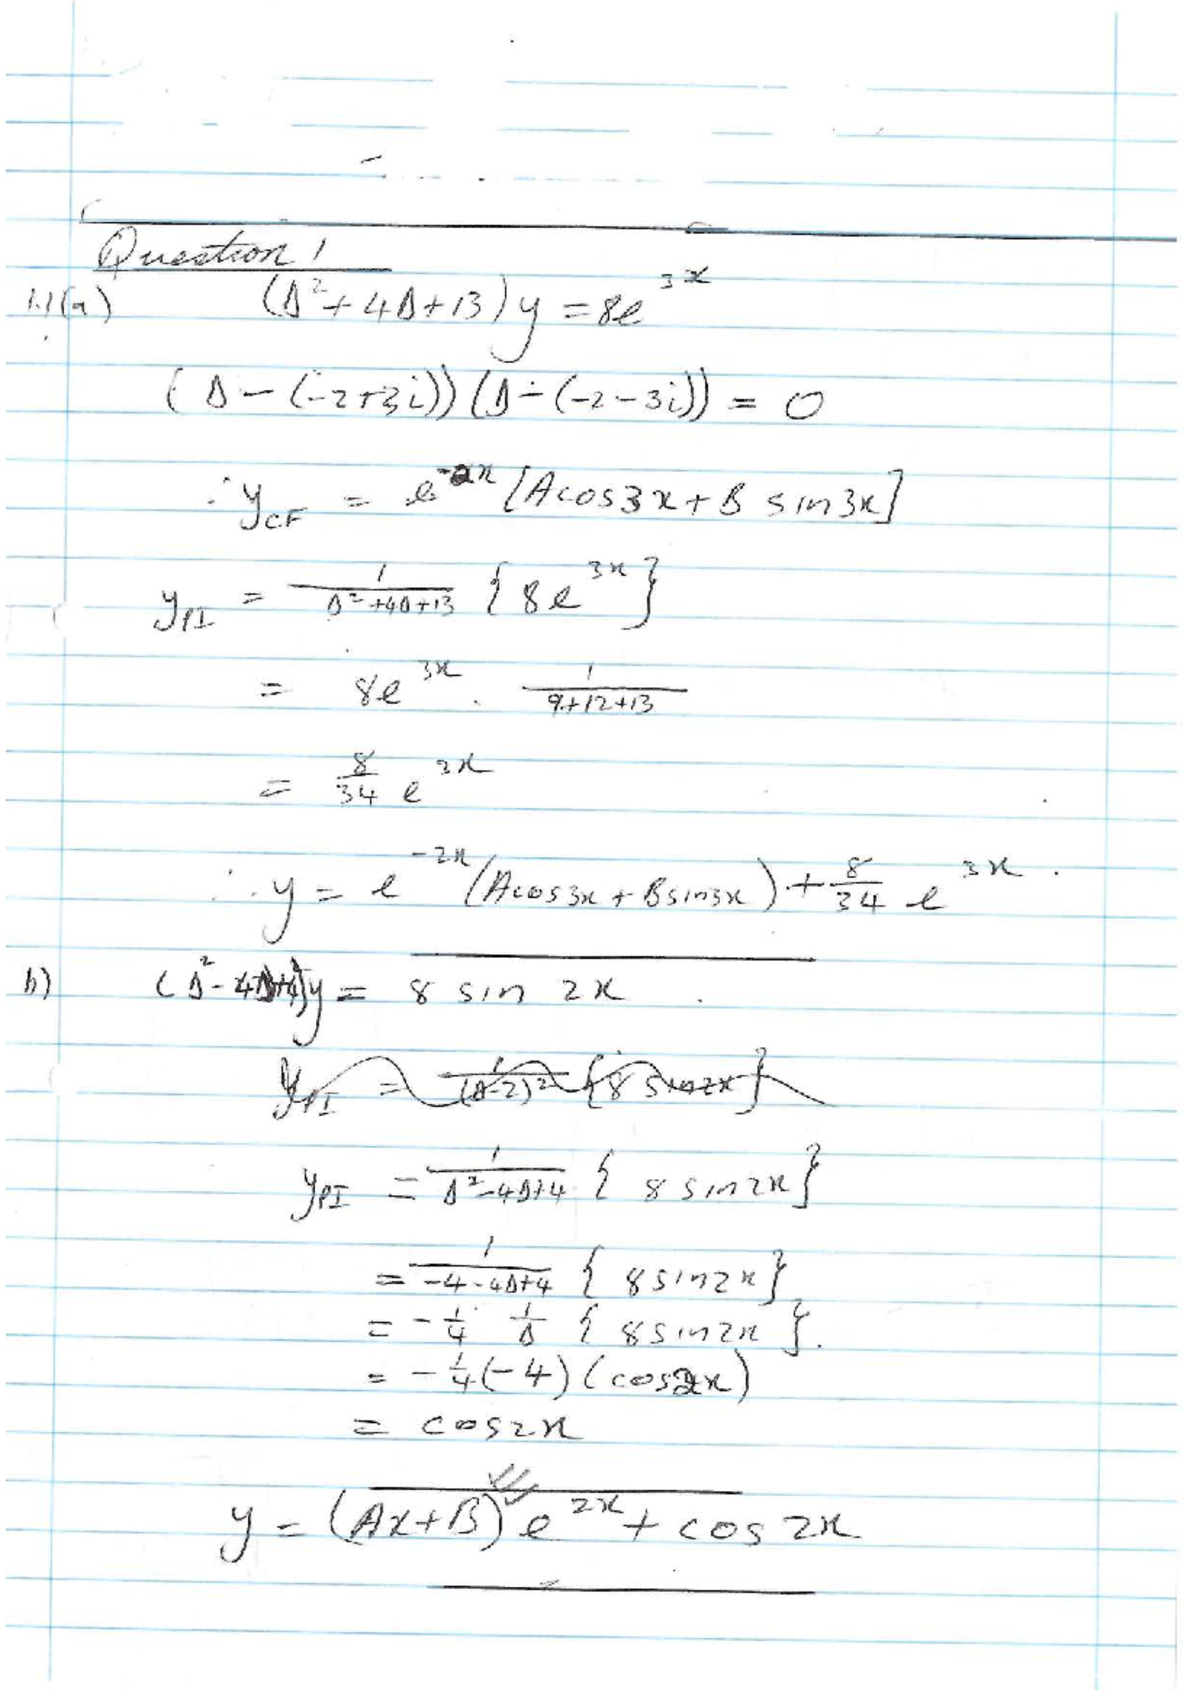 Question 1
1.1(a) (D²+4D+13)y = 8e^{3x}
(D-(-2+3i))(D-(-2-3i)) = 0
∴ y_{CF} = e^{-2x}[Acos3x+B sin3x]
y_{PI} = \frac{1}{D²+4D+13} {8e^{3x}}
= 8e^{3x} . \frac{1}{9+12+13}
= \frac{8}{34} e^{3x}
∴ y = e^{-2x}(Acos3x+Bsin3x)+\frac{8}{34} e^{3x}.
b) (D²-4D+4)y = 8 sin 2x.
y_{PI} = \frac{1}{(D-2)²} {8 sin2x}
y_{PI} = \frac{1}{D²-4D+4} {8 sin2x}
= \frac{1}{-4-4D+4} {8sin2x}
= -\frac{1}{4} \frac{1}{D} {8sin2x}.
= -\frac{1}{4}(-4)(cos2x)
= cos2x
y = (Ax+B)e^{2x}+cos2x